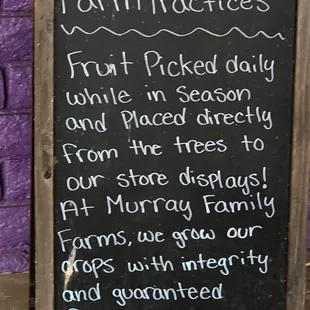 Farm Practices
Fruit Picked daily
while in Season
and Placed directly
from the trees to
our store displays!
At Murray Family
Farms, we grow our
crops with integrity
and guaranteed